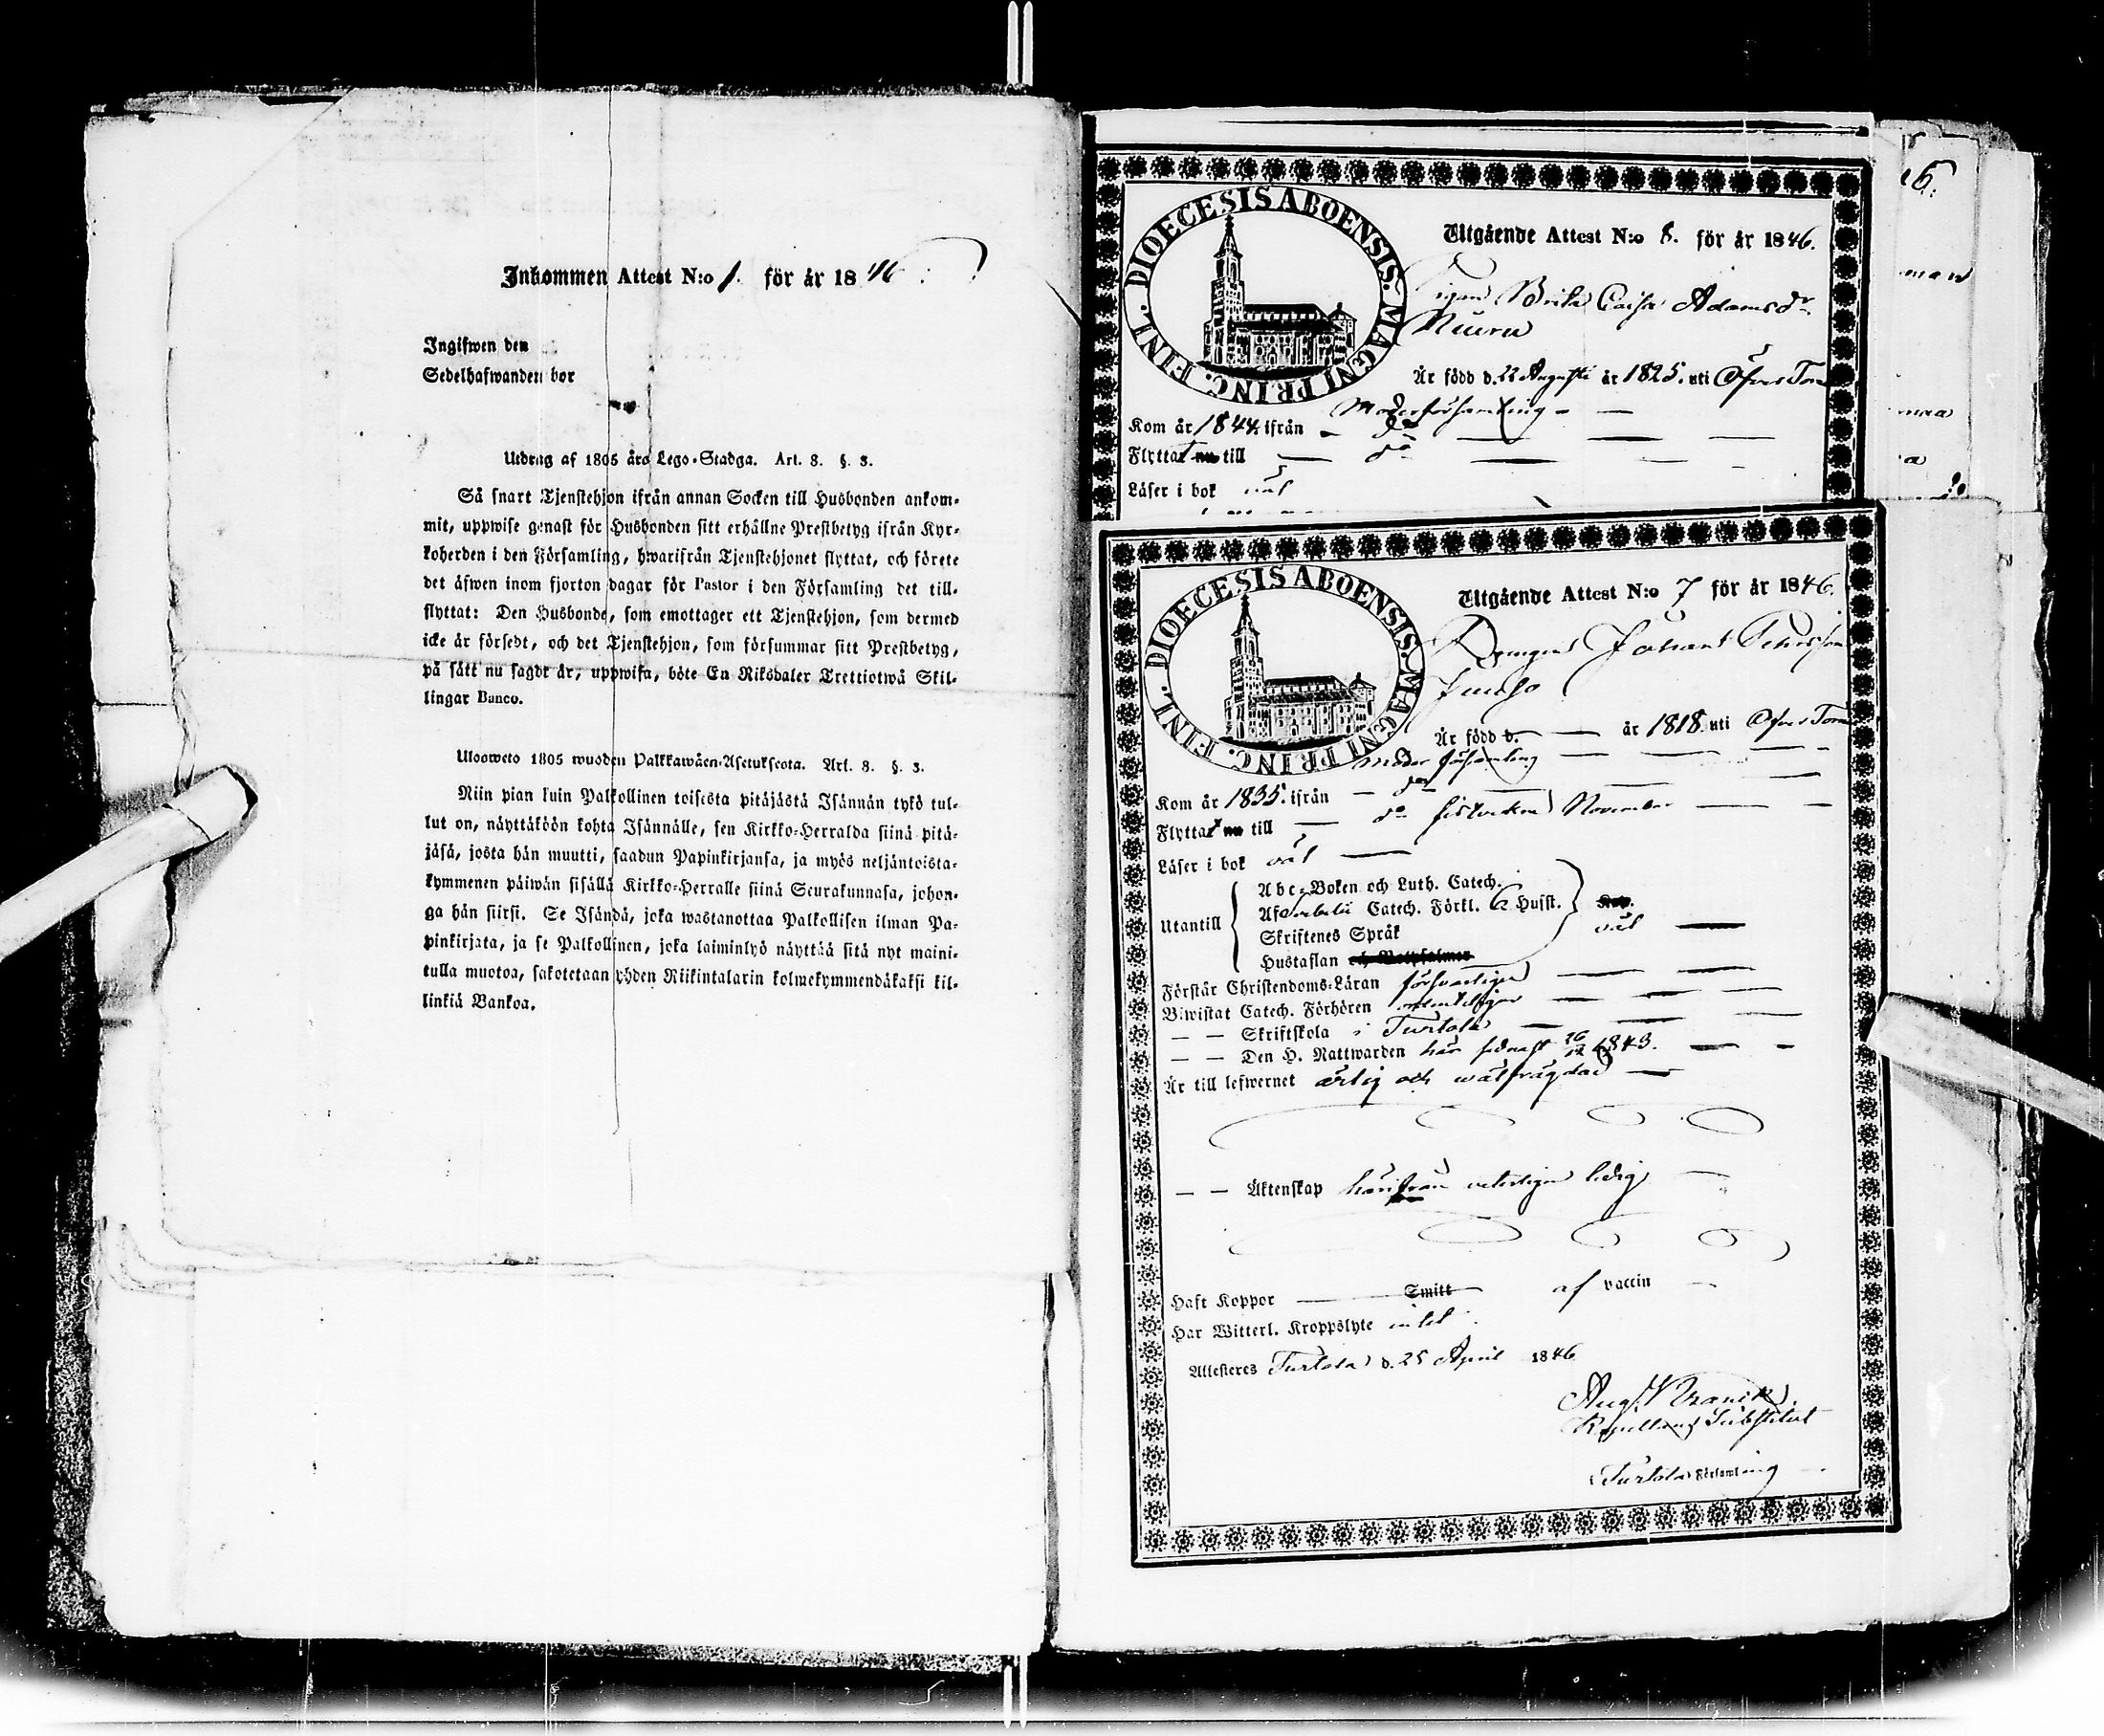 Inkommen Attest N:o 1. för år 1846.
Ingifwen den
Sedelhafwanden bor
Utdrag af 1805 års Lego-Stadga. Art. 8. §. 3.
Så snart Tjenstehjon ifrån annan Socken till Husbonden ankom-
mit, uppwise genast för Husbonden sitt erhållne Prestbetyg ifrån Kyr-
koherden i den Församling, hwarifrån Tjenstehjonet flyttat, och förete
det äfwen inom fjorton dagar för Pastor i den Församling det till-
flyttat: Den Husbonde, som emottager ett Tjenstehjon, som dermed
icke är försedt, och det Tjenstehjon, som försummar sitt Prestbetyg,
på sätt nu sagdt är, uppwisa, böte En Riksdaler Trettiotwå Skil-
lingar Banco.
Ulosweto 1805 wuoden Palkkawäen-Asetuksesta. Art. 8. §. 3.
Niin pian kuin Palkollinen toisesta pitäjästä Isännän tykö tul-
lut on, näyttäköön kohta Isännälle, sen Kirkko-Herralda siinä pitä-
jäsä, josta hän muutti, saadun Papinkirjansa, ja myös neljäntoista-
kymmenen päiwän sisällä Kirkko-Herralle siinä Seurakunnasa, johon-
ga hän siirsi. Se Isändä, joka wastanottaa Palkollisen ilman Pa-
pinkirjata, ja se Palkollinen, joka laiminlyö näyttää sitä nyt maini-
tulla muotoa, sakotetaan yhden Riikintalarin kolmekymmendäkaksi kil-
linkiä Bankoa.
DIOECESIS ABOENSIS. MAGNI PRINC. FINL.
Utgående Attest N:o 8. för år 1846.
Pigan Brita Caisa Adamsdr
Är född d. 22 Augusti år 1825. uti Öfver Torn
Moderförsamling
Kom år 1844. ifrån do
Flyttat nu till do
Läser i bok väl
DIOECESIS ABOENSIS. MAGNI PRINC. FINL.
Utgående Attest N:o 7 för år 1846.
Drengen Johan Petersson
Junso
Är född d. år 1818. uti Öfver Torn
Moder församling
Kom år 1835. ifrån do
Flyttat nu till do sistvekne November
Läser i bok väl
Abc-Boken och Luth. Catech.
Utantill Af Svebelii Catech. Förkl. & Husst.
Skriftenes Språk väl
Hustaflan och Botpsalmer
Förstår Christendoms-Läran försvarligen
Biwistat Catech. Förhören ordentligen
— — Skriftskola i Turtola
— — Den H. Nattwarden här sednast 26/12 1843.
Är till lefwernet ärlig och wälfrägdad
— — Äktenskap härifrån veterligen ledig
Haft Koppor Smitt af vaccin
Har Witterl. Kroppslyte intet
Attesteres Turtola d. 25 April 1846
Kapellans Substitut
Turtola Församling
6.